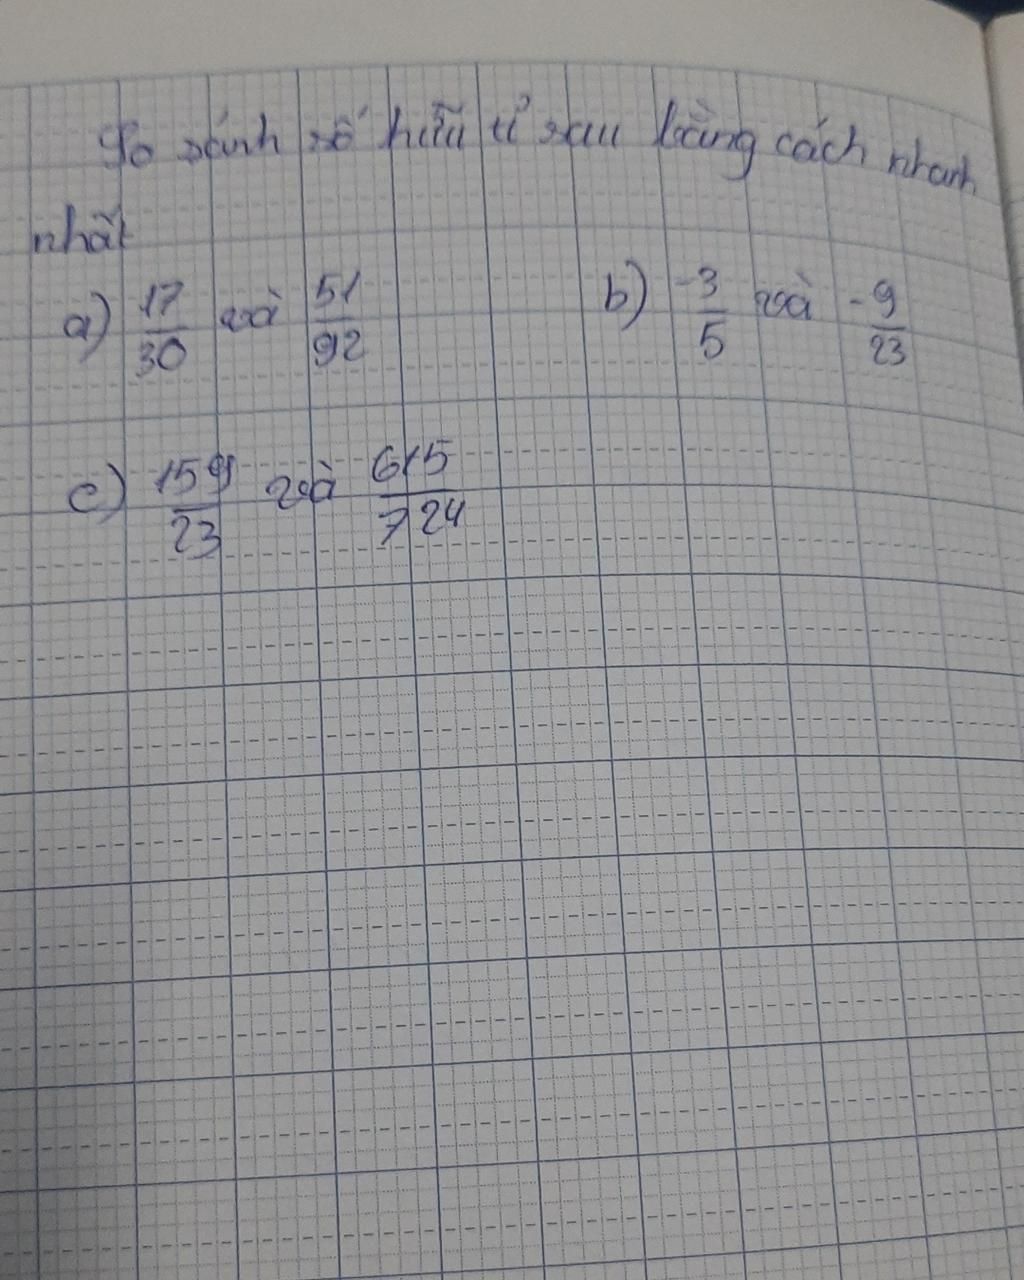 So sánh số hữu tỉ sau bằng cách nhanh
nhất
a) 17/30 và 51/92 b) -3/5 và -9/23
c) 159/23 và 615/724